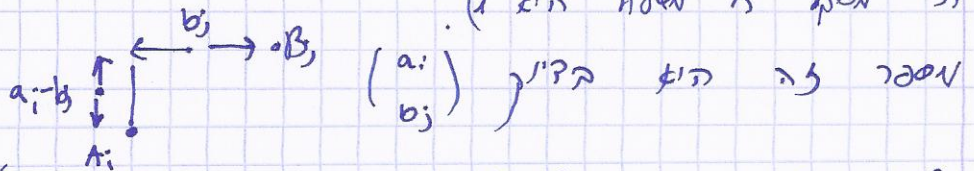 היא
b_j
B_j
a_i-b_j
A_i
מספר זה היא בדיוק (a_i b_j)